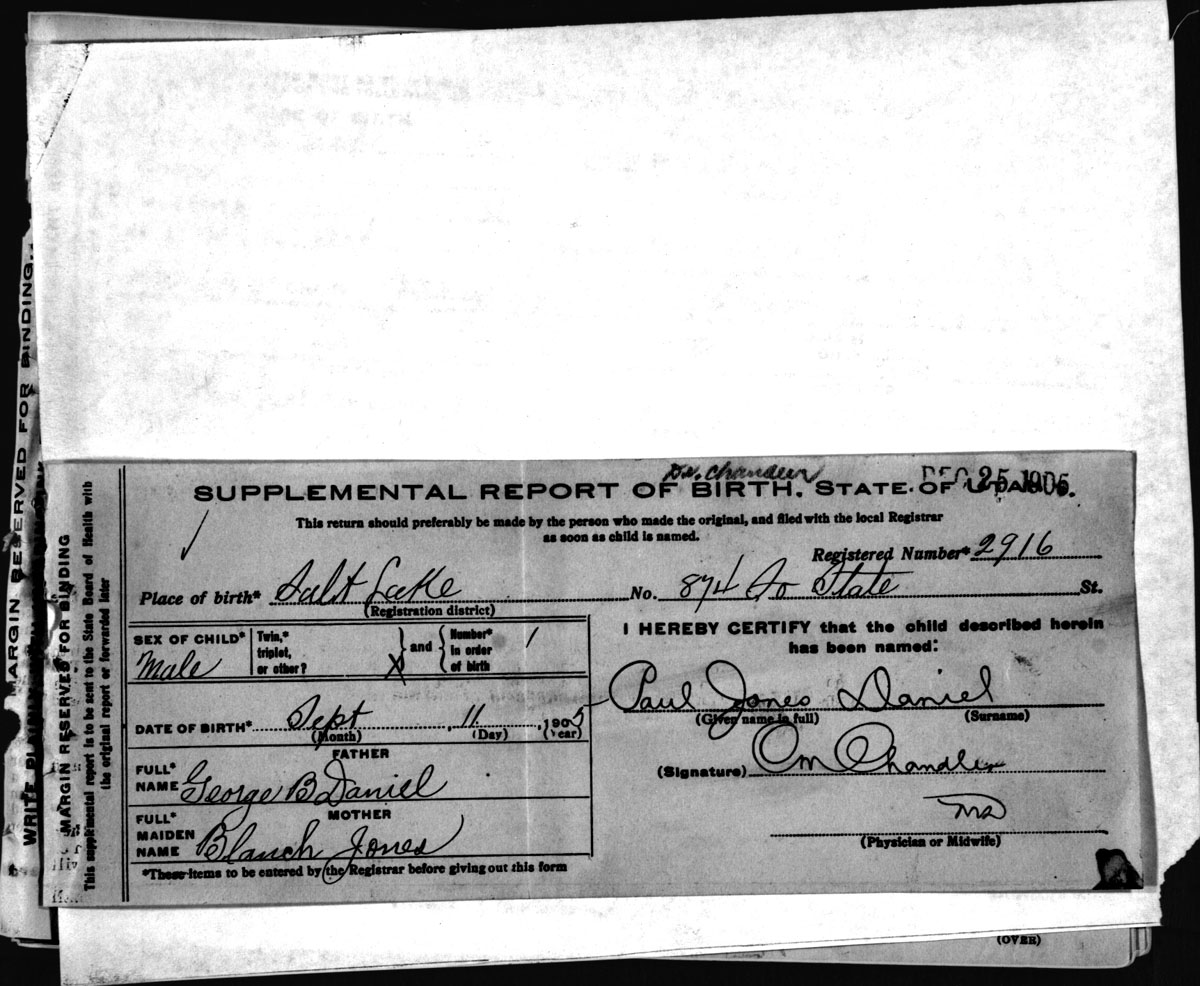 Dr. Chandler
DEC 25 1905
SUPPLEMENTAL REPORT OF BIRTH. STATE OF UTAH.
This return should preferably be made by the person who made the original, and filed with the local Registrar
as soon as child is named.
Registered Number* 2916
Place of birth* Salt Lake No. 874 So State St.
(Registration district)
SEX OF CHILD* Male
Twin,* triplet, or other? X and Number* in order of birth 1
DATE OF BIRTH* Sept 11 1905
(Month) (Day) (Year)
FATHER
FULL* NAME George B Daniel
MOTHER
FULL* MAIDEN NAME Blanch Jones
*These items to be entered by the Registrar before giving out this form
I HEREBY CERTIFY that the child described herein
has been named:
Paul Jones Daniel
(Given name in full) (Surname)
(Signature) C M Chandler
MD
(Physician or Midwife)
MARGIN RESERVED FOR BINDING
This supplemental report is to be sent to the State Board of Health with
the original report or forwarded later
MARGIN RESERVED FOR BINDING.
WRITE
(OVER)